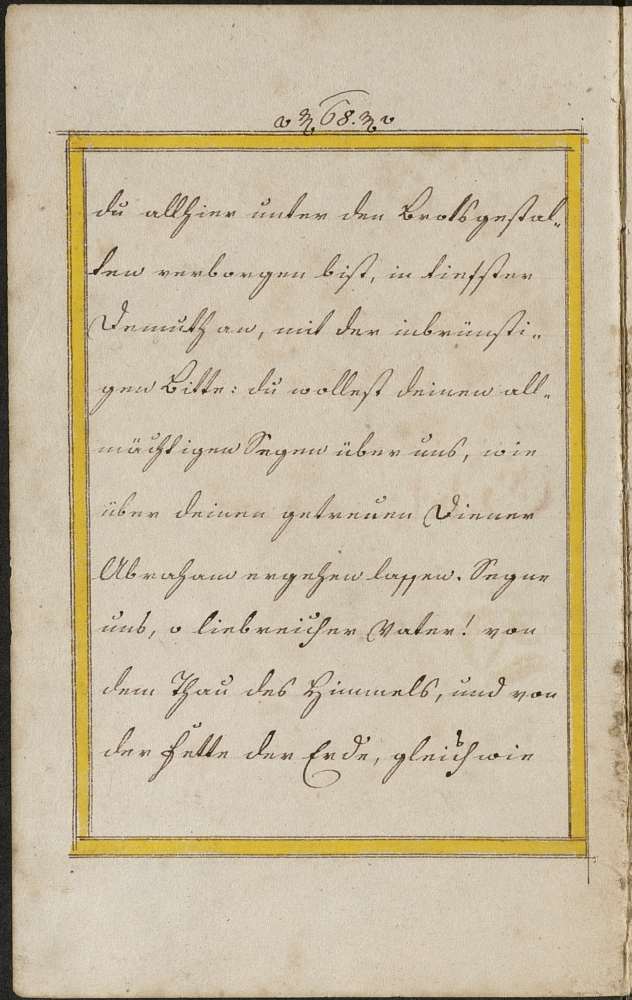 68.
du allhier unter den Brodsgestal„
ten verborgen bist, in tiefster
Demuth an, mit der inbrünsti„
gen Bitte: du wollest deinen all„
mächtigen Segen über uns, wie
über deinen getreuen Diener
Abraham ergehen lassen. Segne
uns, o liebreicher Vater! von
dem Thau des Himmels, und von
der Fette der Erde, gleichwie